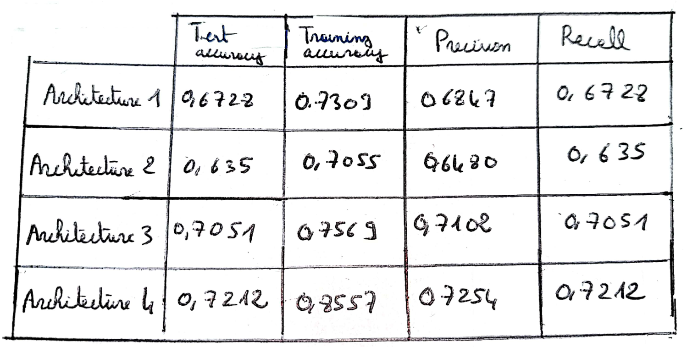 Test accuracy Training accuracy Precision Recall
Architecture 1 0,6728 0.7309 0,6847 0,6728
Architecture 2 0,635 0,7055 0,6480 0,635
Architecture 3 0,7051 0,7569 0,7102 0,7051
Architecture 4 0,7212 0,8557 0,7254 0,7212